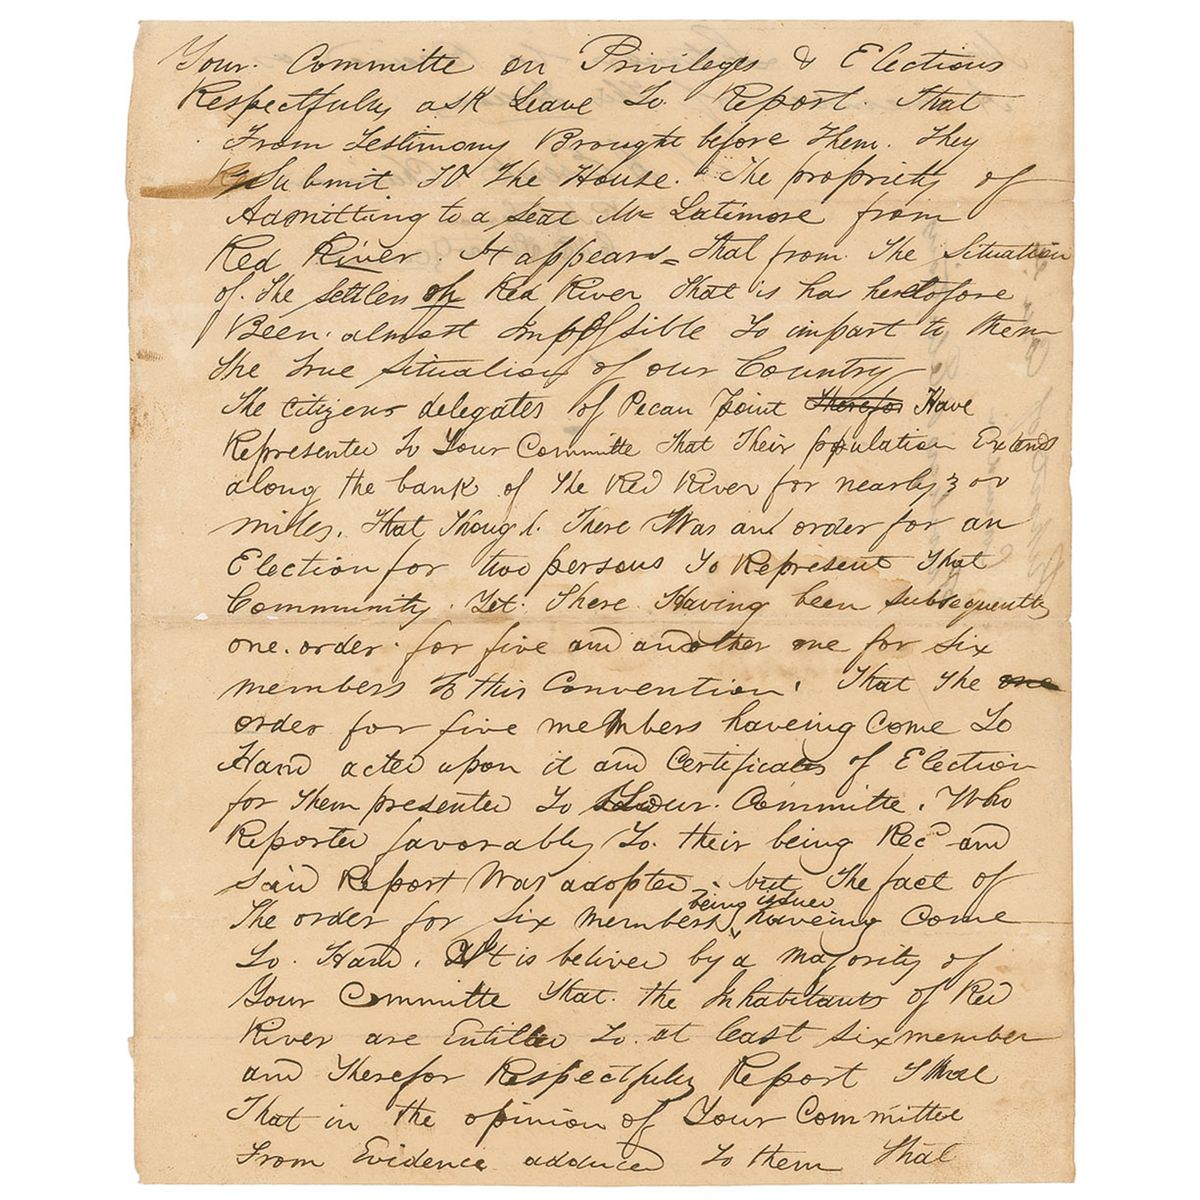 Your. Committe on Privileges & Elections
Respectfuly ask Leave To Report. That
From Testimony Brought before Them. They
Submit To The House. The propriety of
Admitting to a Seat Mr Latimore from
Red River. It appears = That from The Situation
of The Settlers on Red River That is has heretofore
Been almost Impossible To impart to them
The True Situation of our Country
The Citizens delegates of Pecan Point Therefor Have
Represented To Your Committe That Their population Extends
along the bank of The Red River for nearly 3 or
miles. That Though. There Was and order for an
Election for two persons To Represent That
Community. Yet. There Having been subsequently
one. order for five and another one for Six
members To this Convention. That The one
order for five members haveing Come To
Hand acted upon it and Certificates of Election
for Them presented To Your. Committe. Who
Reported favorably To. their being Recd and
said Report Was adopted. but The fact of
being issued
The order for Six members haveing Come
To. Hand. It is belived by a majority of
Your Committe That. the Inhabitants of Red
River are Entitled To. at least Six member
and Therefor Respectfuly Report
That in the opinion of Your Committee
From Evidence adduced To them That